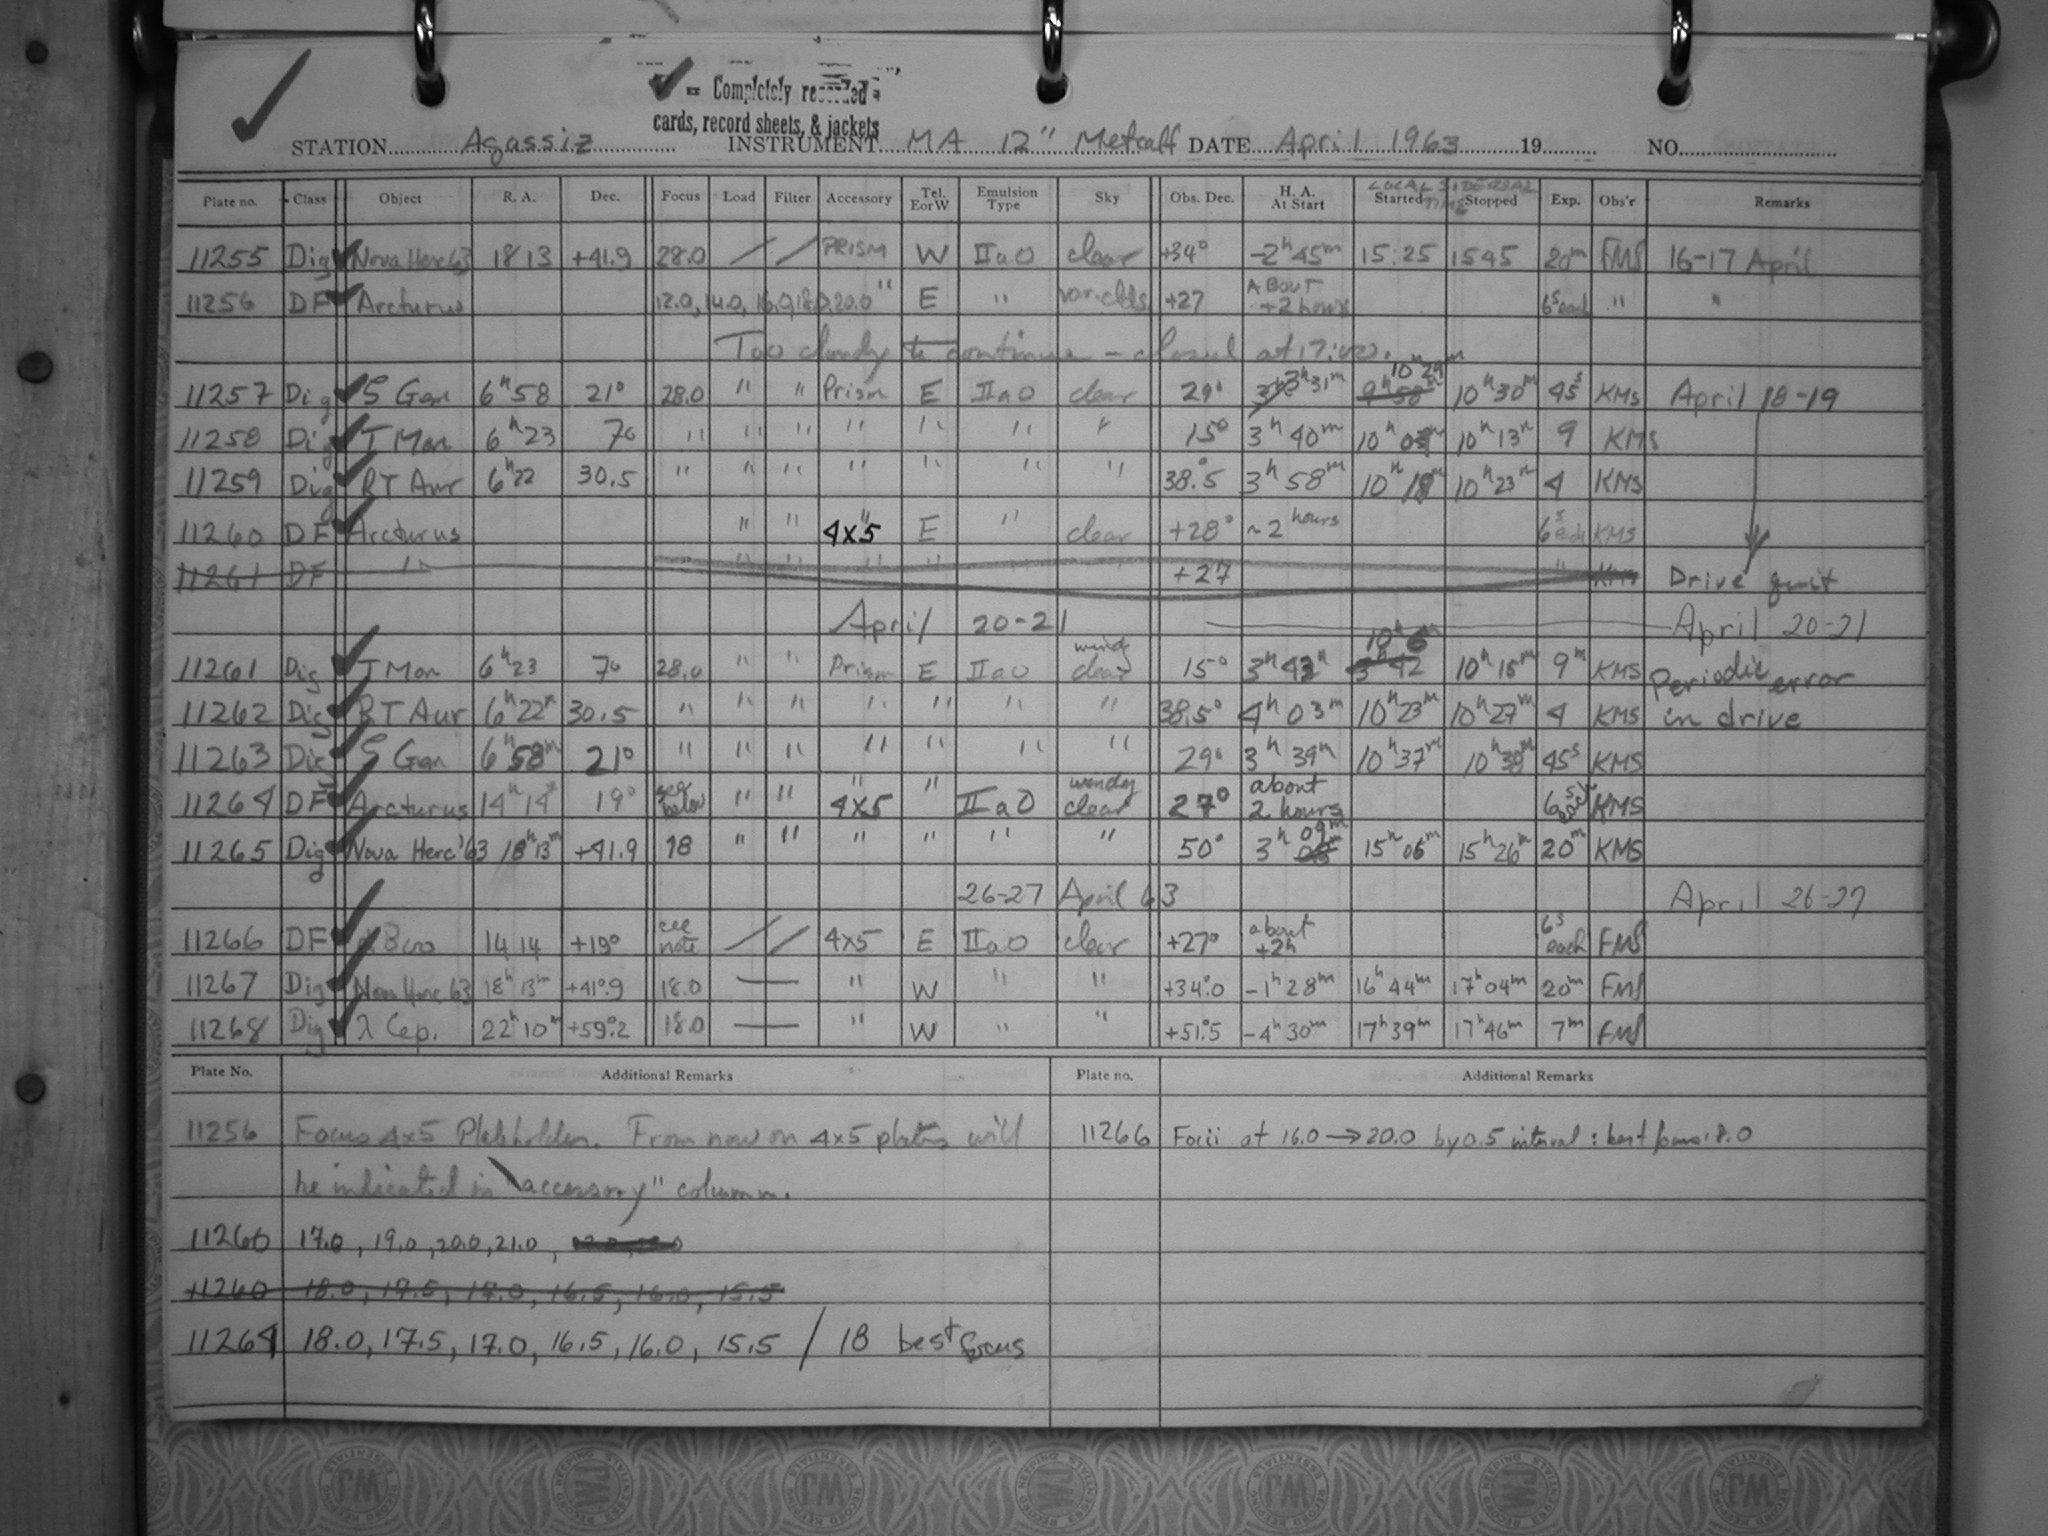 ✓ = Completely recorded
cards, record sheets, & jackets
STATION Agassiz INSTRUMENT MA 12" Metcalf DATE April 1963 19 NO.
Plate no. Class Object R. A. Dec. Focus Load Filter Accessory Tel. EorW Emulsion Type Sky Obs. Dec. H. A. At Start LOCAL SIDEREAL TIME Started Stopped Exp. Obs'r Remarks
11255 Dig ✓ Nova Herc 63 18 13 +41.9 28.0 / / PRISM W IIaO clear +34° -2h 45m 15:25 1545 20m FMS 16-17 April
11256 DF ✓ Arcturus 12.0, 14.0, 16.0, 18.0, 20.0 " E " +27 ABOUT +2 hours 6s each " "
Too cloudy to continue - closed at 17:00.
11257 Dig ✓ ζ Gem 6h 58 21° 28.0 " " Prism E IIaO clear 29° 3h 31m 10h 29m 10h 30m 45s KMS April 18-19
11258 Dig ✓ T Mon 6h 23 7° " " " " " " " 15° 3h 40m 10h 10h 13m 9 KMS
11259 Dig ✓ RT Aur 6h 22 30.5 " " " " " " " 38.5° 3h 58m 10h 19m 10h 23m 4 KMS
11260 DF ✓ Arcturus " " 4x5 E " clear +28° ~2 hours 6s each KMS
11261 DF " " " " " +27 " KMS Drive quit
April 20-21 April 20-21
11261 Dig ✓ T Mon 6h 23 7° 28.0 " " Prism E IIaO windy clear 15° 3h 43m 10h 6m 10h 15m 9m KMS Periodic error
11262 Dig ✓ RT Aur 6h 22m 30.5 " " " " " " " 38.5° 4h 03m 10h 23m 10h 27m 4 KMS in drive
11263 Dig ✓ ζ Gem 6h 58m 21° " " " " " " " 29° 3h 39m 10h 37m 10h 38m 45s KMS
11264 DF ✓ Arcturus 14h 14m 19° see below " " 4x5 " IIaO windy clear 27° about 2 hours 6s each KMS
11265 Dig ✓ Nova Herc '63 18h 13m +41.9 18 " " " " " " 50° 3h 09m 15h 06m 15h 26m 20m KMS
26-27 April 63 April 26-27
11266 DF ✓ α Boo 14 14 +19° see note / / 4x5 E IIaO clear +27° about +2h 6s each FMS
11267 Dig ✓ Nova Herc 63 18h 13m +41°.9 18.0 — " W " " +34°.0 -1h 28m 16h 44m 17h 04m 20m FMS
11268 Dig ✓ λ Cep. 22h 10m +59°.2 18.0 — " W " " +51°.5 -4h 30m 17h 39m 17h 46m 7m FMS
Plate No. Additional Remarks Plate no. Additional Remarks
11256 Focus 4x5 Plateholder. From now on 4x5 plates will 11266 Focii at 16.0 → 20.0 by 0.5 interval: best focus 18.0
be indicated in "accessory" column.
11260 17.0, 19.0, 20.0, 21.0,
11260 18.0, 17.5, 17.0, 16.5, 16.0, 15.5
11264 18.0, 17.5, 17.0, 16.5, 16.0, 15.5 / 18 best focus